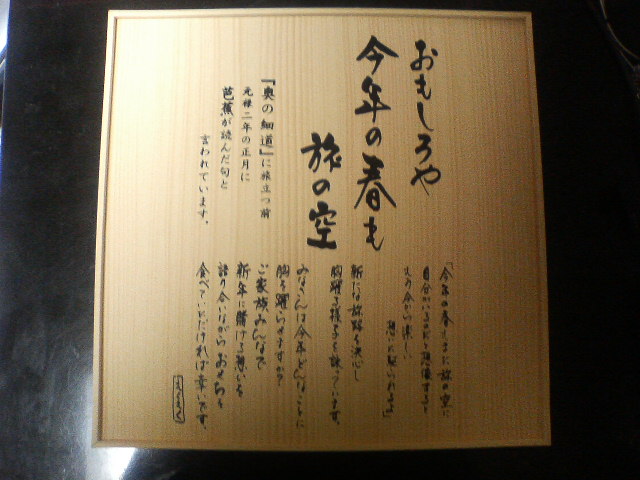 おもしろや
今年の春も
旅の空
『奥の細道』に旅立つ前
元禄二年の正月に
芭蕉が読んだ句と
言われています。
「今年の春もまた旅の空に
自分がいるだろうと想像すると
もう今から楽しい
想いに駆られる」
新たな旅路を決心し
胸躍る様子を詠っています。
みなさんは今年どんなことに
胸を躍らせますか？
ご家族、みんなで
新年に賭ける想いを
語り合いながらおせちを
食べていただければ幸いです。